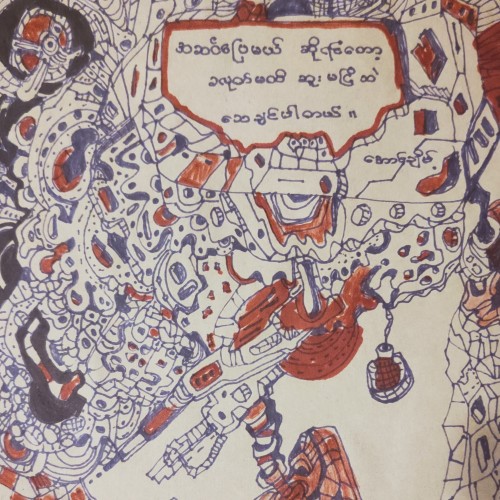 အဆင်ပြေမယ် ဆိုရင်တော့
ခလုတ်မထိ ဆူးမငြိဘဲ
သေချင်ပါတယ်။
အောင်ချိမ့်